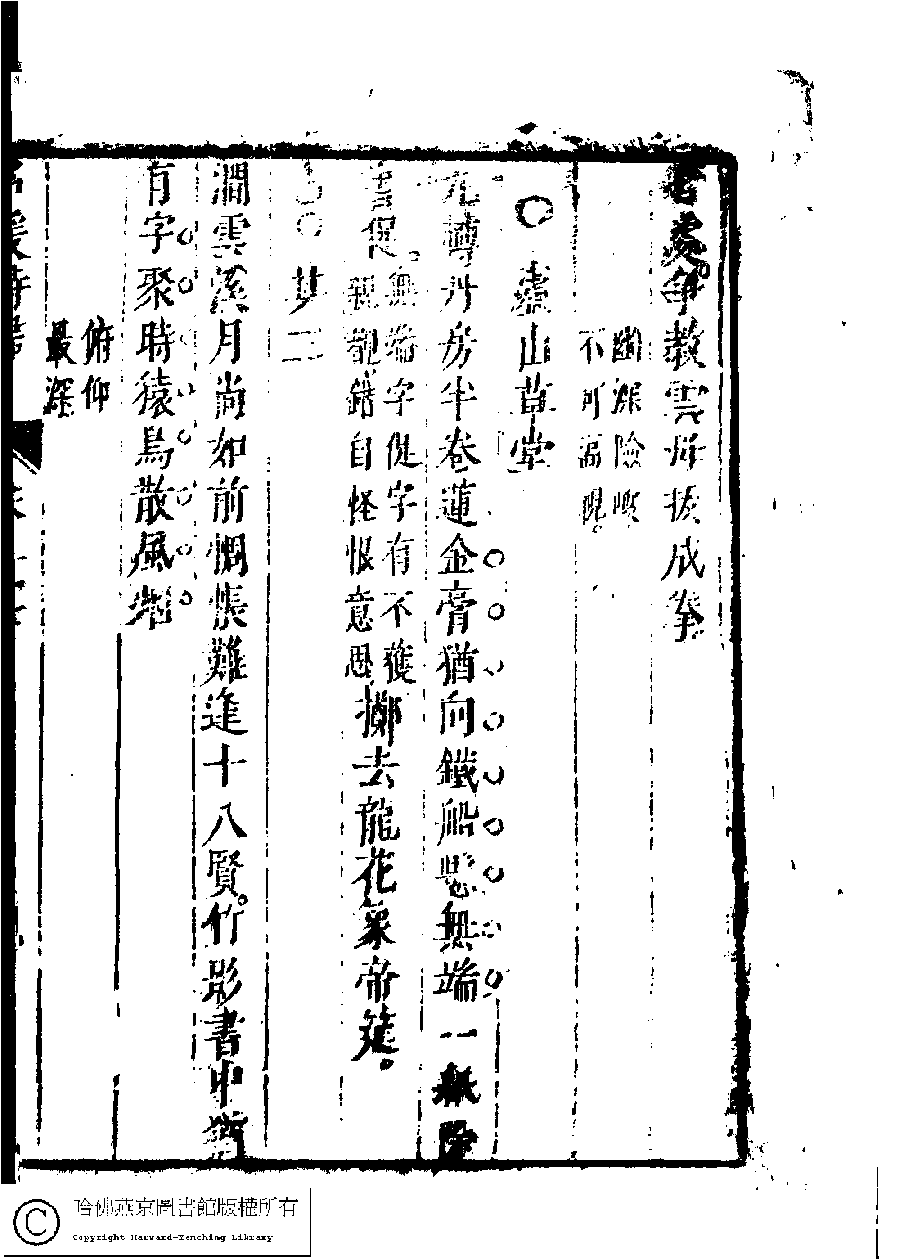 處爭教雲母拔成拳
幽深險噭
不可漏唲。
廬山草堂
九轉丹房半卷蓮金膏猶向鐵船懸無端一紙陰
書促
無端字促字有不獲
親觀錯自怪恨意思
擲去龍花象帝筵。
其二
澗雲溪月尚如前惆悵難逢十八賢。竹影書中
有字聚時猿鳥散風烟
俯仰
最深
名媛詩
哈佛燕京圖書館版權所有
Copyright Harvard-Yenching Library